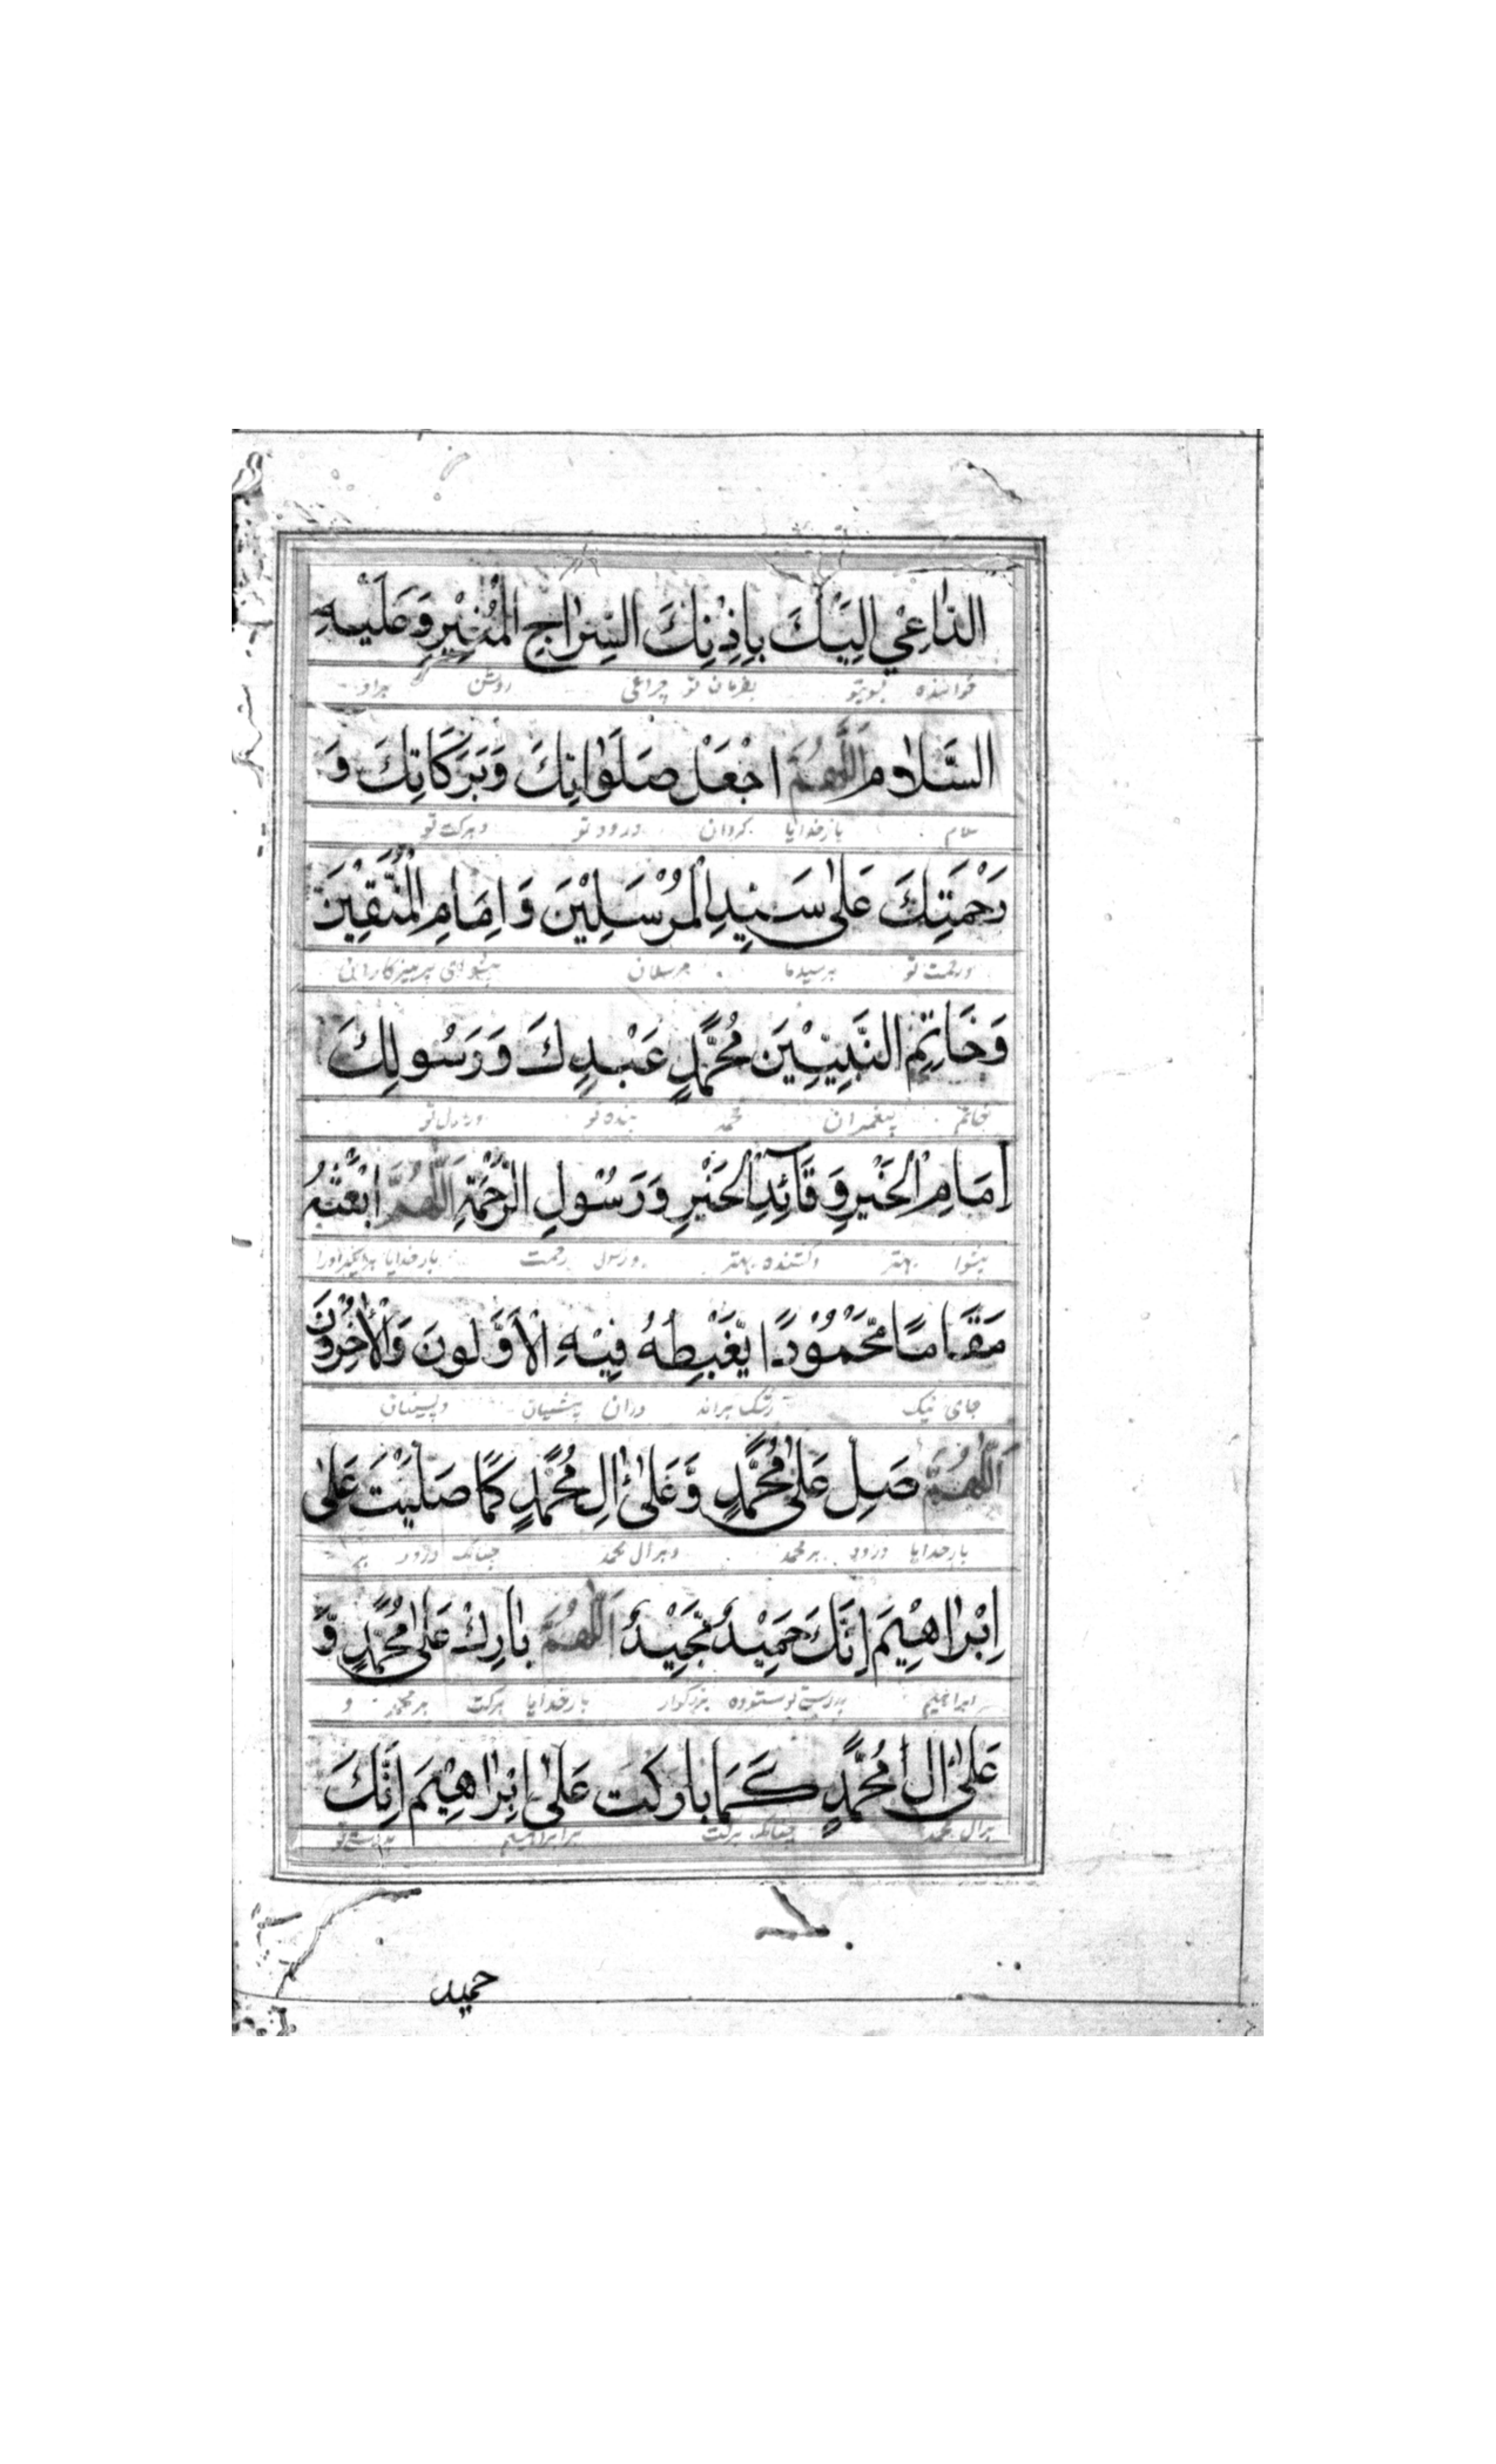 الدَّاعِيْ اِلَيْكَ بِاِذْنِكَ السِّرَاجِ الْمُنِيْرِ وَعَلَيْهِ
خواننده بسویتو بفرمان تو چراغی روشن براو
السَّلَامُ اَللّٰهُمَّ اجْعَلْ صَلَوٰاتِكَ وَبَرَكَاتِكَ وَ
سلام بارخدایا کردان درود تو وبرکت تو
رَحْمَتِكَ عَلٰى سَيِّدِ الْمُرْسَلِيْنَ وَاِمَامِ الْمُتَّقِيْنَ
ورحمت تو برسید مرسلان پیشوای پرهیزکاران
وَخَاتِمِ النَّبِيّٖيْنَ مُحَمَّدٍ عَبْدِكَ وَرَسُولِكَ
بخاتم پیغمبران محمد بنده تو ورسول تو
اِمَامِ الْخَيْرِ وَقَآئِدِ الْخَيْرِ وَرَسُوْلِ الرَّحْمَةِ اَللّٰهُمَّ ابْعَثْهُ
پیشوا بهتر وکشنده بهتر ورسول رحمت بارخدایا
مَقَامًا مَّحْمُوْدًا يَّغْبِطُهُ فِيْهِ الْاَوَّلُونَ وَالْاٰخِرُوْنَ
جای نیک رشک براند دران پیشینیان وپسینان
اَللّٰهُمَّ صَلِّ عَلٰى مُحَمَّدٍ وَّعَلٰى اٰلِ مُحَمَّدٍ كَمَا صَلَّيْتَ عَلٰى
بارخدایا درود برمحمد وبرآل محمد چنانکه درود بر
اِبْرَاهِيْمَ اِنَّكَ حَمِيْدٌ مَّجِيْدٌ اَللّٰهُمَّ بَارِكْ عَلٰى مُحَمَّدٍ وَّ
ابراهیم بدرستی تو ستوده بزرکوار بارخدایا برکت برمحمد و
عَلٰى اٰلِ مُحَمَّدٍ كَمَا بَارَكْتَ عَلٰى اِبْرَاهِيْمَ اِنَّكَ
برآل محمد چنانکه برکت برابراهیم بدرستی تو
حمید